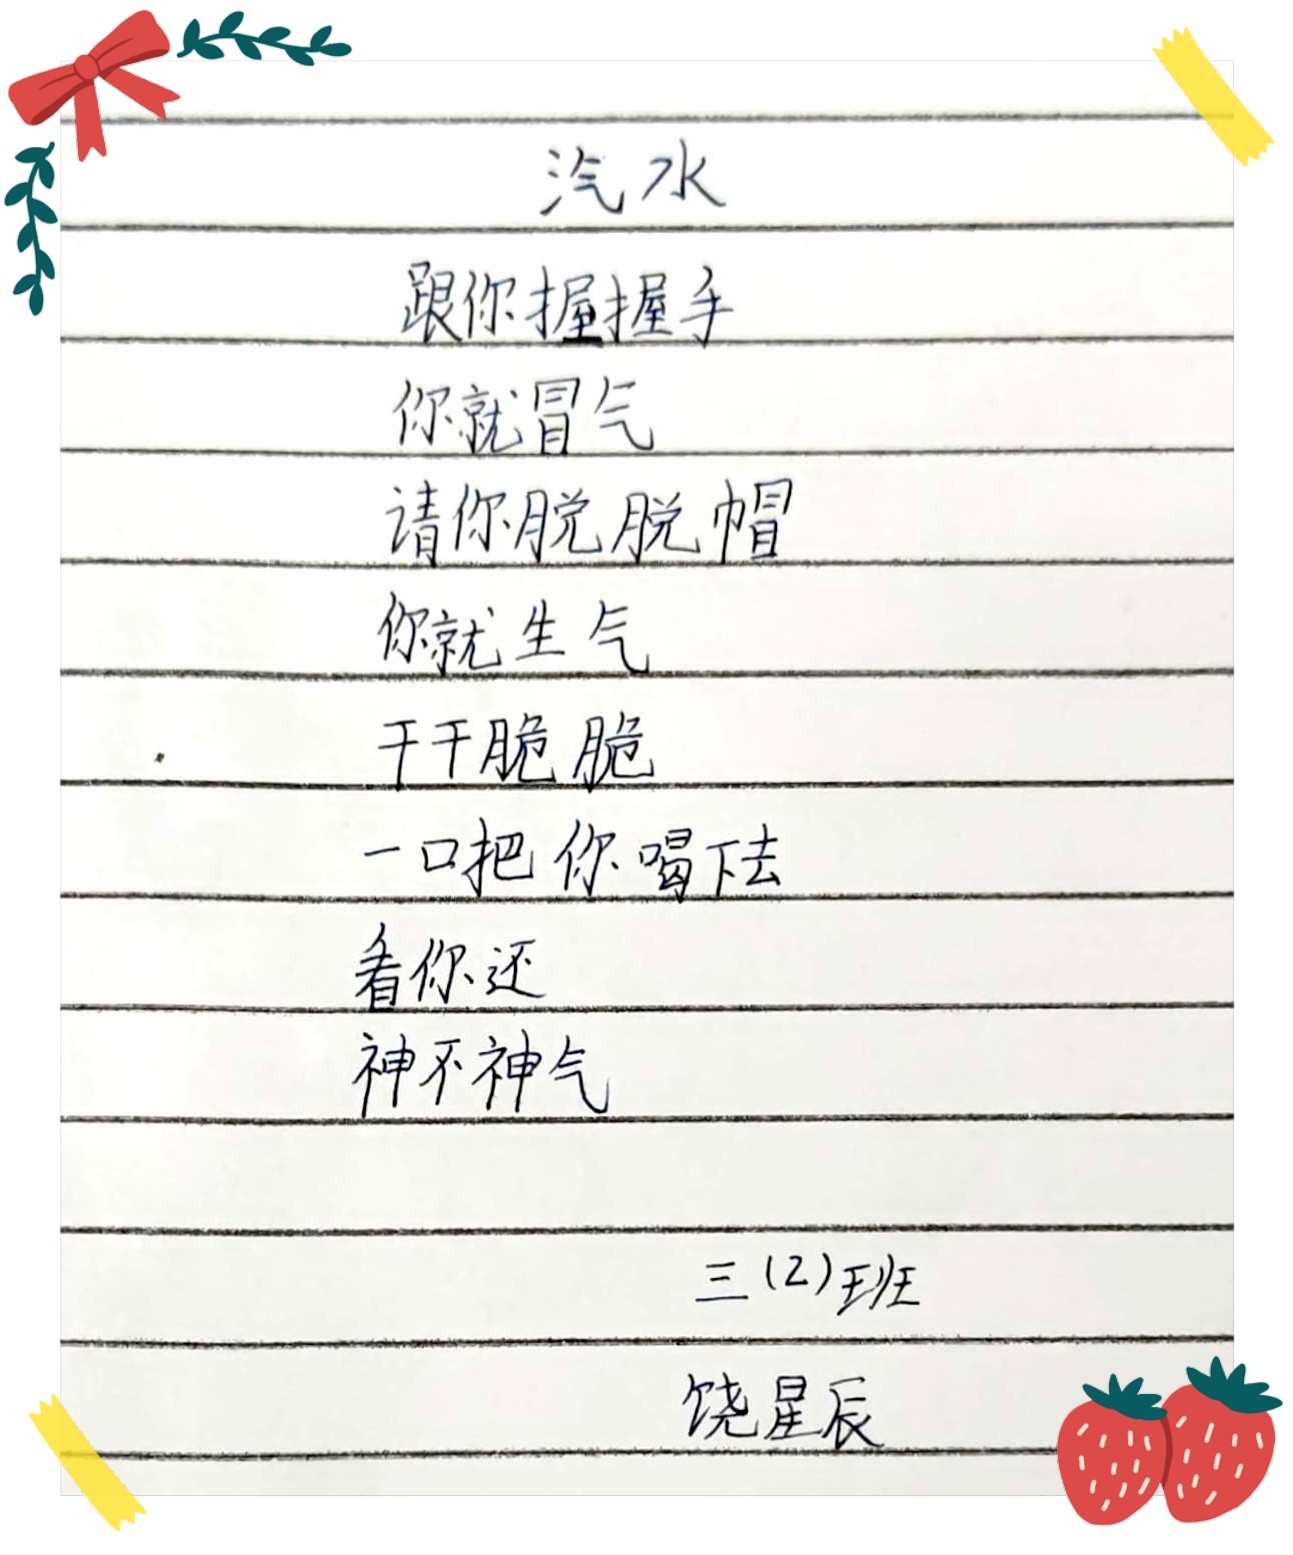 汽水
跟你握握手
你就冒气
请你脱脱帽
你就生气
干干脆脆
一口把你喝下去
看你还
神不神气
三(2)班
饶星辰